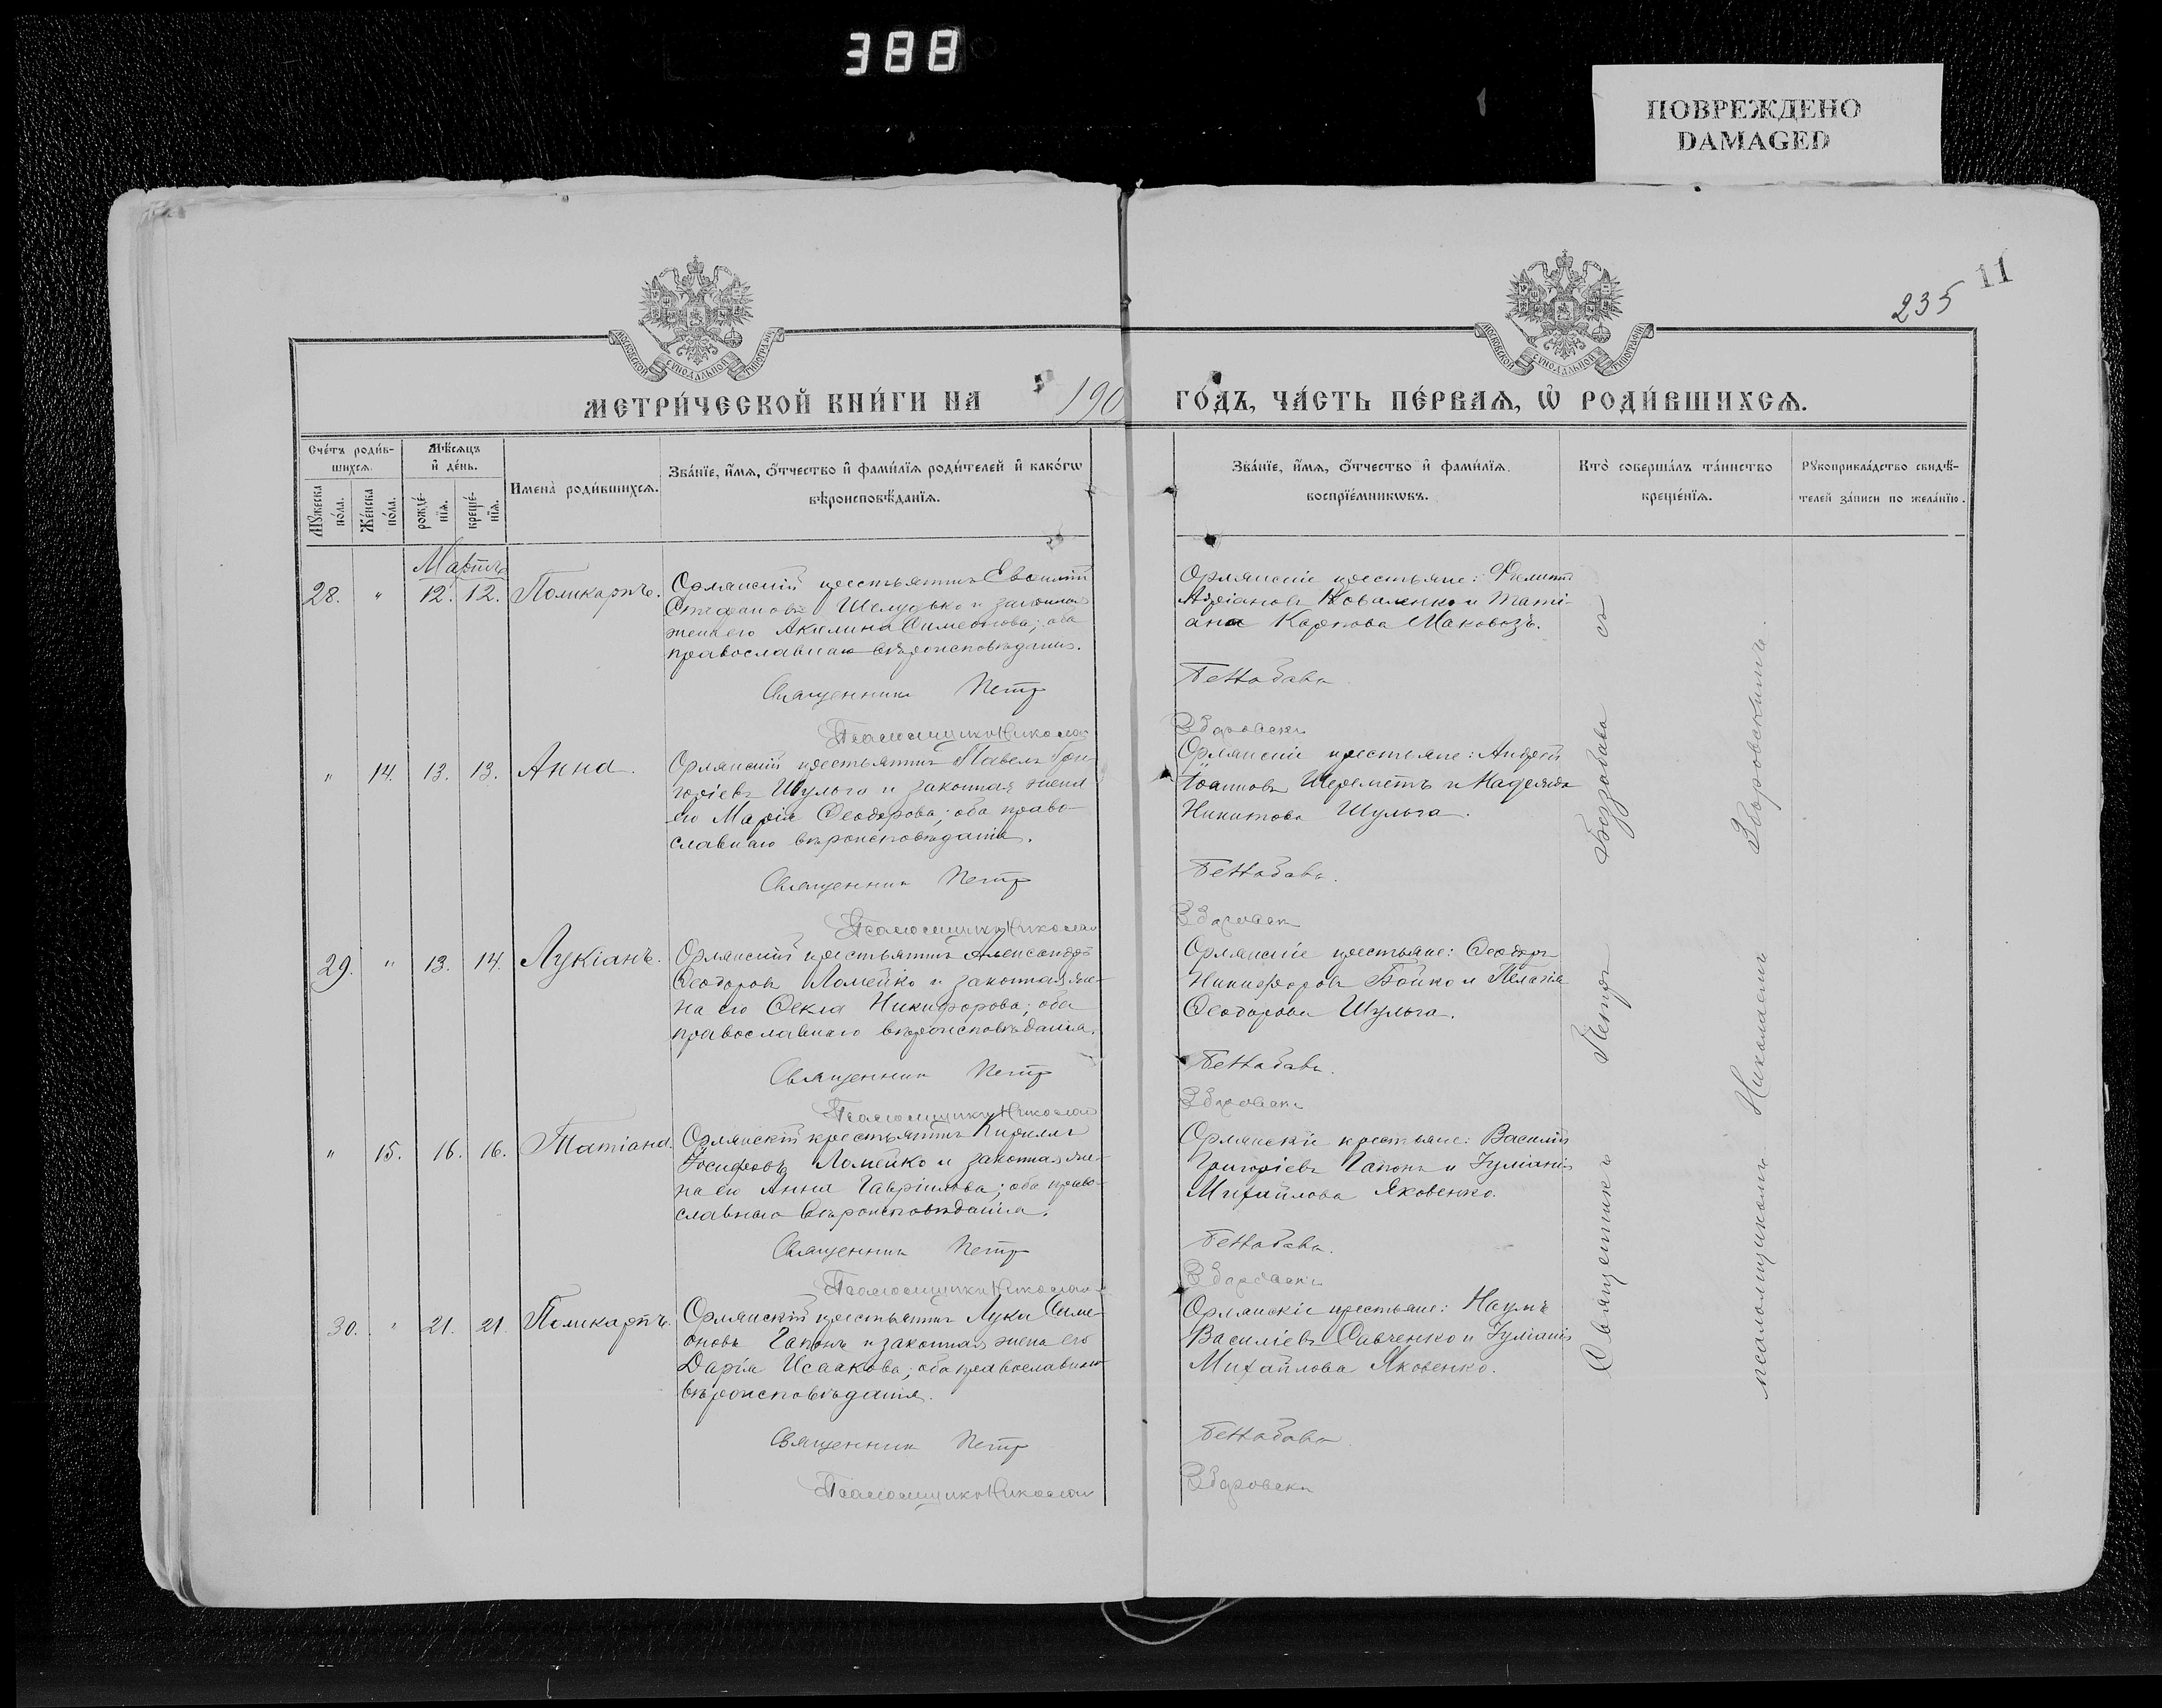 388
ПОВРЕЖДЕНО
DAMAGED
11
235
МОСКОВСКОЙ СѴНОДАЛЬНОЙ ТИПОГРАФІИ
МОСКОВСКОЙ СѴНОДАЛЬНОЙ ТИПОГРАФІИ
МЕТРИ́ЧЕСКОЙ КНИ́ГИ НА 190 ГО́ДЪ, ЧА́СТЬ ПЕ́РВАѦ, Ѽ РОДИ́ВШИХСѦ.
Сче́тъ роди́в-
шихсѧ.
Мѣ́сѧцъ
и҆ де́нь.
Мꙋ́жеска
по́ла.
Же́нска
по́ла.
рожде́-
нїѧ.
креще́-
нїѧ.
Имена̀ роди́вшихсѧ.
Зва́нїе, и҆́мѧ, ѻ҆́тчество и҆ фами́лїѧ роди́телей и҆ како́гѡ
вѣроисповѣ́данїѧ.
Зва́нїе, и҆́мѧ, ѻ҆́тчество и҆ фами́лїѧ
воспрїе́мникѡвъ.
Кто̀ соверша́лъ та́инство
креще́нїѧ.
Рꙋкоприкла́дство свидѣ́-
телей за́писи по жела́нїю.
Мартъ
28. " 12. 12. Поликарпъ.
Орлянскій крестьянинъ
Стефановъ Шелудько и законная
жена его Акилина Симеонова; оба
православнаго вѣроисповѣданія.
Священникъ Петръ
Псаломщикъ Николай
Орлянскіе крестьяне: Филиппъ
Адріановъ Коваленко и Таті-
ана Карпова Маковозъ.
Беззабава
Зборовскій
" 14. 13. 13. Анна.
Орлянскій крестьянинъ Павелъ Гри-
горіевъ Шульга и законная жена
его Марія Ѳеодорова; оба право-
славнаго вѣроисповѣданія.
Священникъ Петръ
Псаломщикъ Николай
Орлянскіе крестьяне: Андрей
Іоанновъ Шереметъ и Надежда
Никитова Шульга.
Беззабава.
Зборовскій
29. " 13. 14. Лукіанъ.
Орлянскій крестьянинъ Александръ
Ѳеодоровъ Ломейко и законная же-
на его Ѳекла Никифорова; оба
православнаго вѣроисповѣданія.
Священникъ Петръ
Псаломщикъ Николай
Орлянскіе крестьяне: Ѳеодоръ
Никифоровъ Бойко и Пелагія
Ѳеодорова Шульга.
Беззабава.
Зборовскій
" 15. 16. 16. Татіана.
Орлянскій крестьянинъ Кириллъ
Іосифовъ Ломейко и законная же-
на его Анна Гавріилова; оба право-
славнаго вѣроисповѣданія.
Священникъ Петръ
Псаломщикъ Николай
Орлянскіе крестьяне: Василій
Григоріевъ Гапонъ и Іуліанія
Михайлова Яковенко.
Беззабава.
Зборовскій
30. " 21. 21. Поликарпъ.
Орлянскій крестьянинъ Лука Симе-
оновъ Гапонъ и законная жена его
Дарія Исаакова; оба православнаго
вѣроисповѣданія.
Священникъ Петръ
Псаломщикъ Николай
Орлянскіе крестьяне: Наумъ
Василіевъ Савченко и Іуліанія
Михайлова Яковенко.
Беззабава
Зборовскій
Священникъ Петръ Беззабава съ
псаломщикомъ Николаемъ Зборовскимъ.